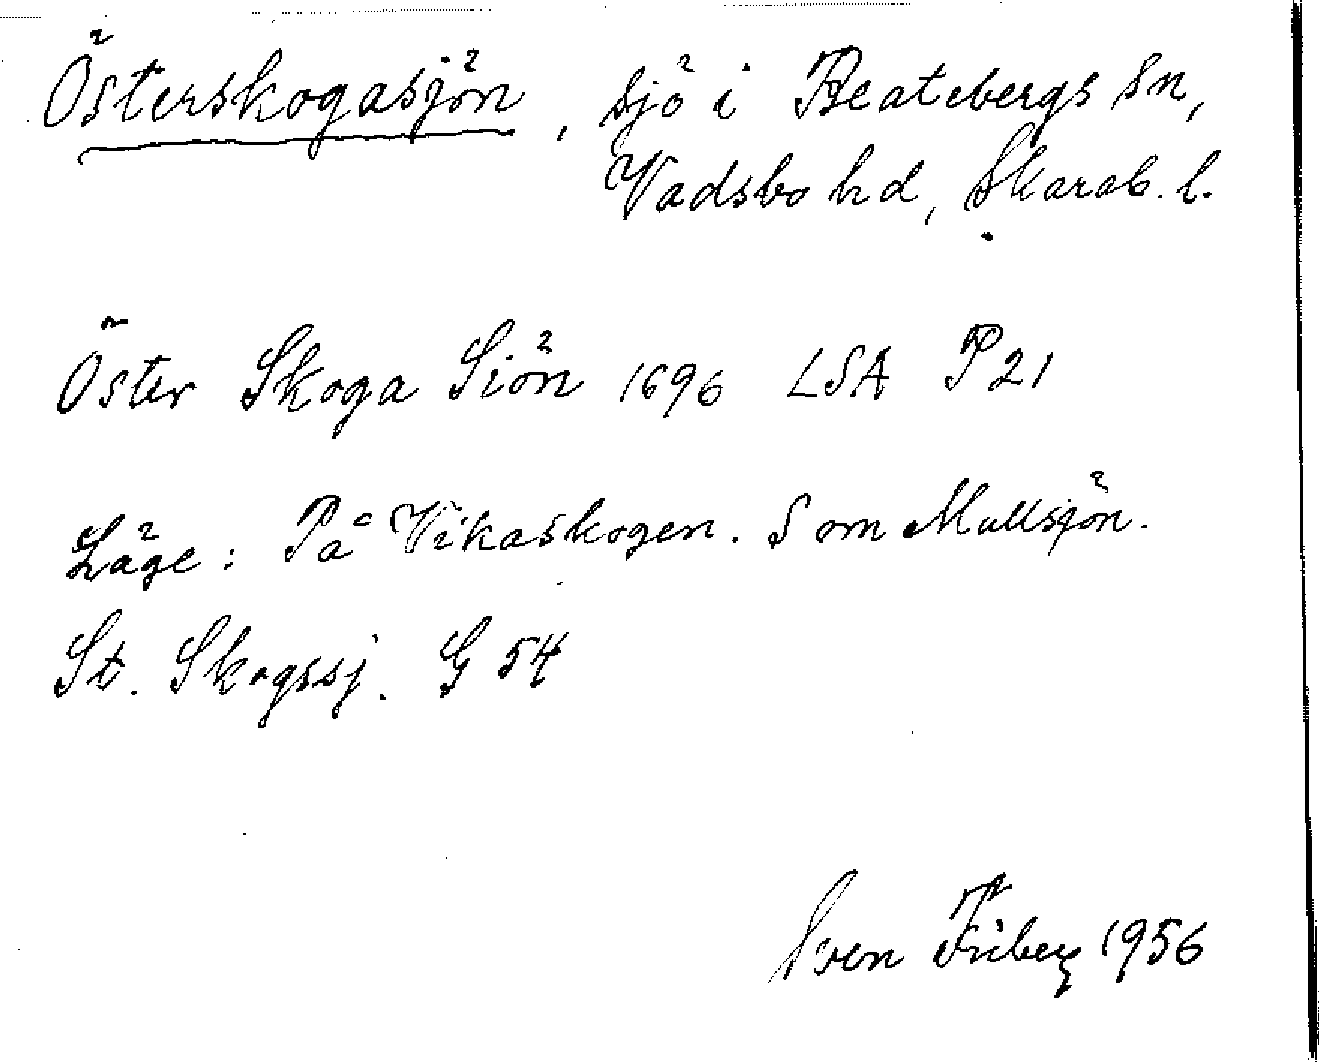 Österskogasjön, sjö i Beatebergs sn,
Vadsbo hd, Skarab. l.
Öster Skoga Siön 1696 LSA P21
Läge: På Vikaskogen. Som Mullsjön.
St. Skogssj. G 54
Sven Friberg 1956